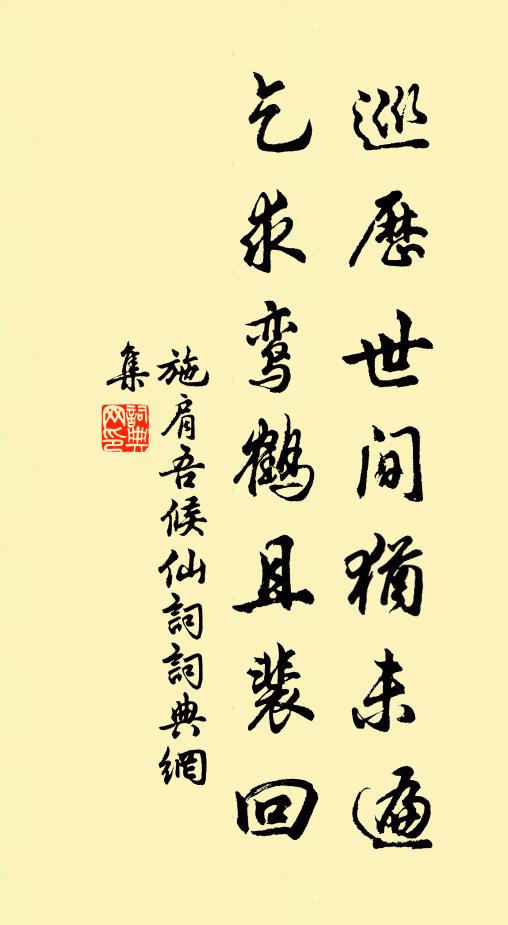 巡歷世间猶未遍
乞求鸾鶴且裴回
施肩吾候仙詞詞典網
集
詞典
网印